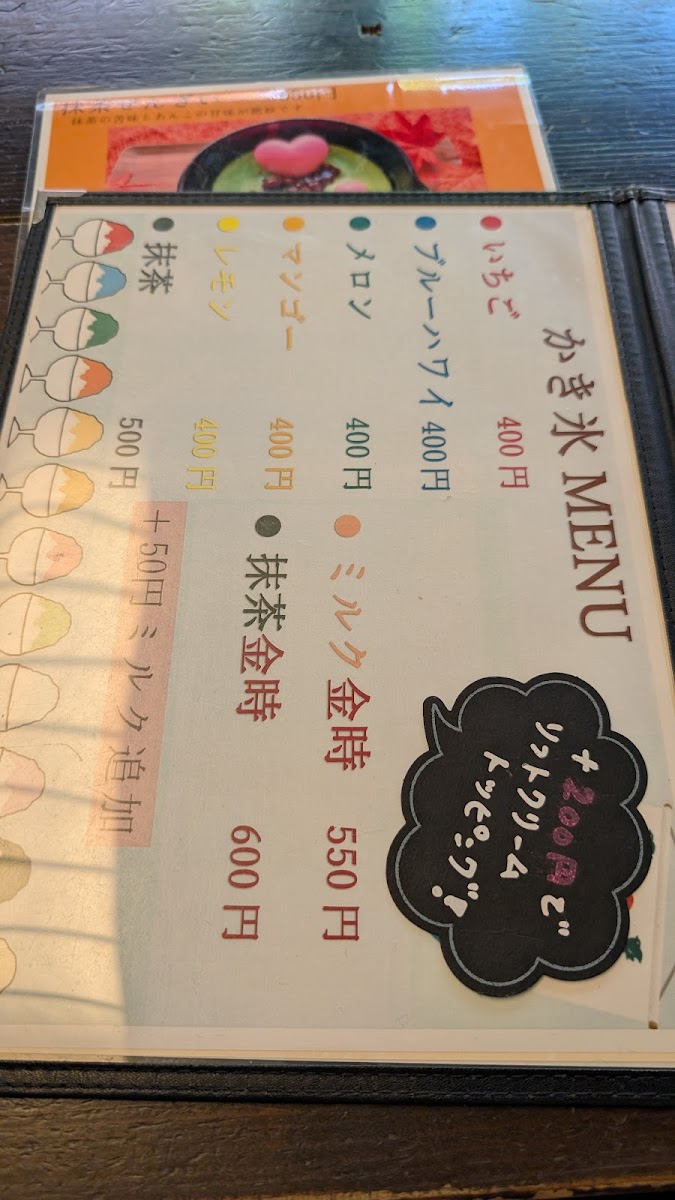 かき氷 MENU
いちご 400円
ブルーハワイ 400円
メロン 400円
マンゴー 400円
レモン 400円
抹茶 500円
ミルク金時 550円
抹茶金時 600円
+50円ミルク追加
+200円で
ソフトクリーム
トッピング!